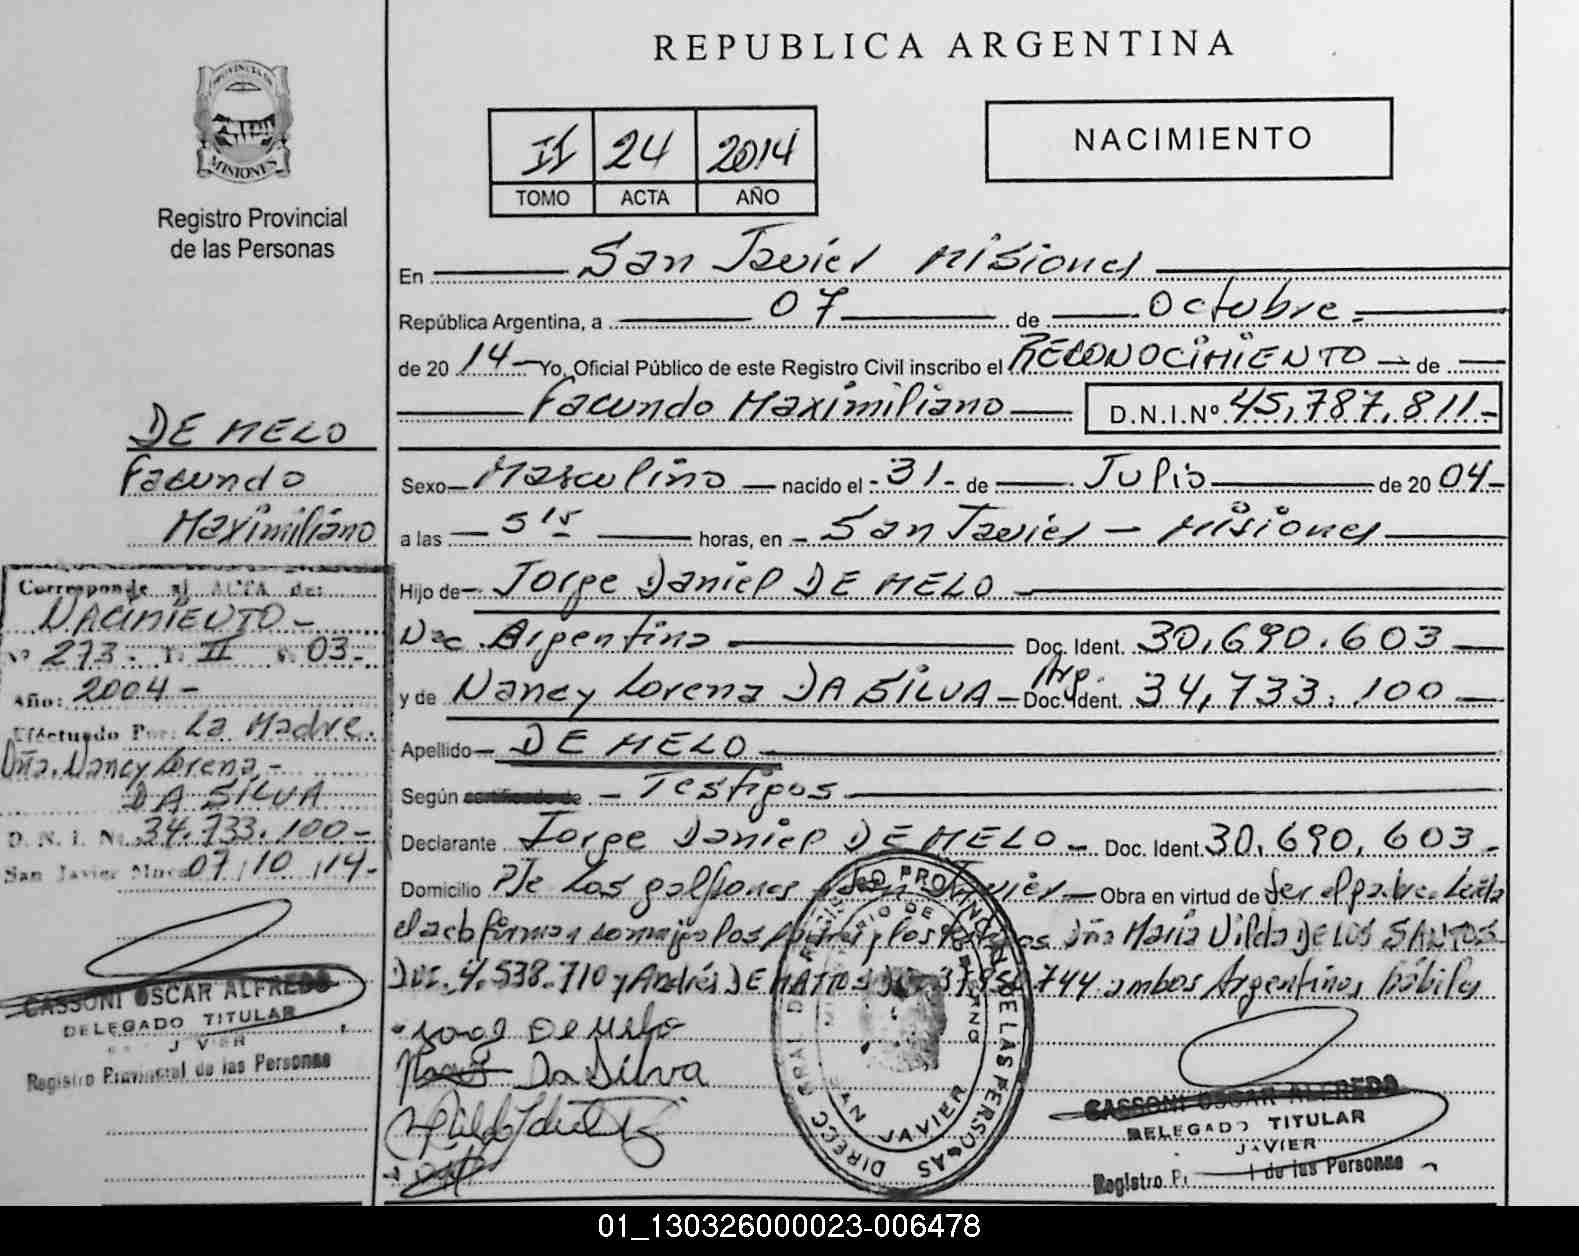 REPUBLICA ARGENTINA
PROVINCIA DE
MISIONES
Registro Provincial
de las Personas
II 24 2014
TOMO ACTA AÑO
NACIMIENTO
En San Javier Misiones
República Argentina, a 07 de Octubre
de 20 14 Yo, Oficial Público de este Registro Civil inscribo el RECONOCIMIENTO de
Facundo Maximiliano D.N.I.Nº 45,787,811-
Sexo Masculino nacido el 31 de Julio de 20 04
a las 5 15 horas, en San Javier - Misiones
Hijo de Jorge Daniel DE MELO
Nac. Argentina Doc. Ident. 30,690.603
y de Nancy Lorena DA SILVA Arg. Doc. Ident. 34,733.100
Apellido DE MELO
Según certificado de - Testigos
Declarante Jorge Daniel DE MELO - Doc. Ident. 30,690,603-
Domicilio Pje Los galpones San Javier Obra en virtud de Ser el padre. Leida
el acta firman conmigo los padres y los testigos Dña Maria Vilda DE LOS SANTOS
Doc. 4.538.710 y Andrés DE MATTOS 744 ambos Argentinos hábiles
Jorge De Melo
Da Silva
DE MELO
Facundo
Maximiliano
Corresponde al ACTA de:
NACIMIENTO -
Nº 273. T. II F. 03-
Año: 2004 -
Efectuado Por: La Madre.
Dña. Nancy Lorena -
DA SILVA
D. N. I. Nº 34.733.100-
San Javier Mnes 07/10/14-
CASSONI OSCAR ALFREDO
DELEGADO TITULAR
JAVIER
Registro Provincial de las Personas
DIRECC. GRAL. DEL REGISTRO PROVINCIAL DE LAS PERSONAS
MINISTERIO DE GOBIERNO
SAN JAVIER
CASSONI OSCAR ALFREDO
DELEGADO TITULAR
JAVIER
Registro P l de las Personas
01_130326000023-006478